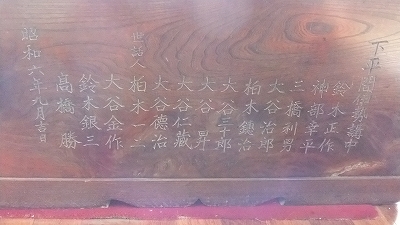 下平間稲荷講中
鈴木正作
神部幸平
三橋利男
大谷治郎
柏木鐖治
大谷三十郎
大谷昇
大谷仁蔵
大谷德治
世話人 柏木一二
大谷金作
鈴木銀三
髙橋勝
昭和六年九月吉日